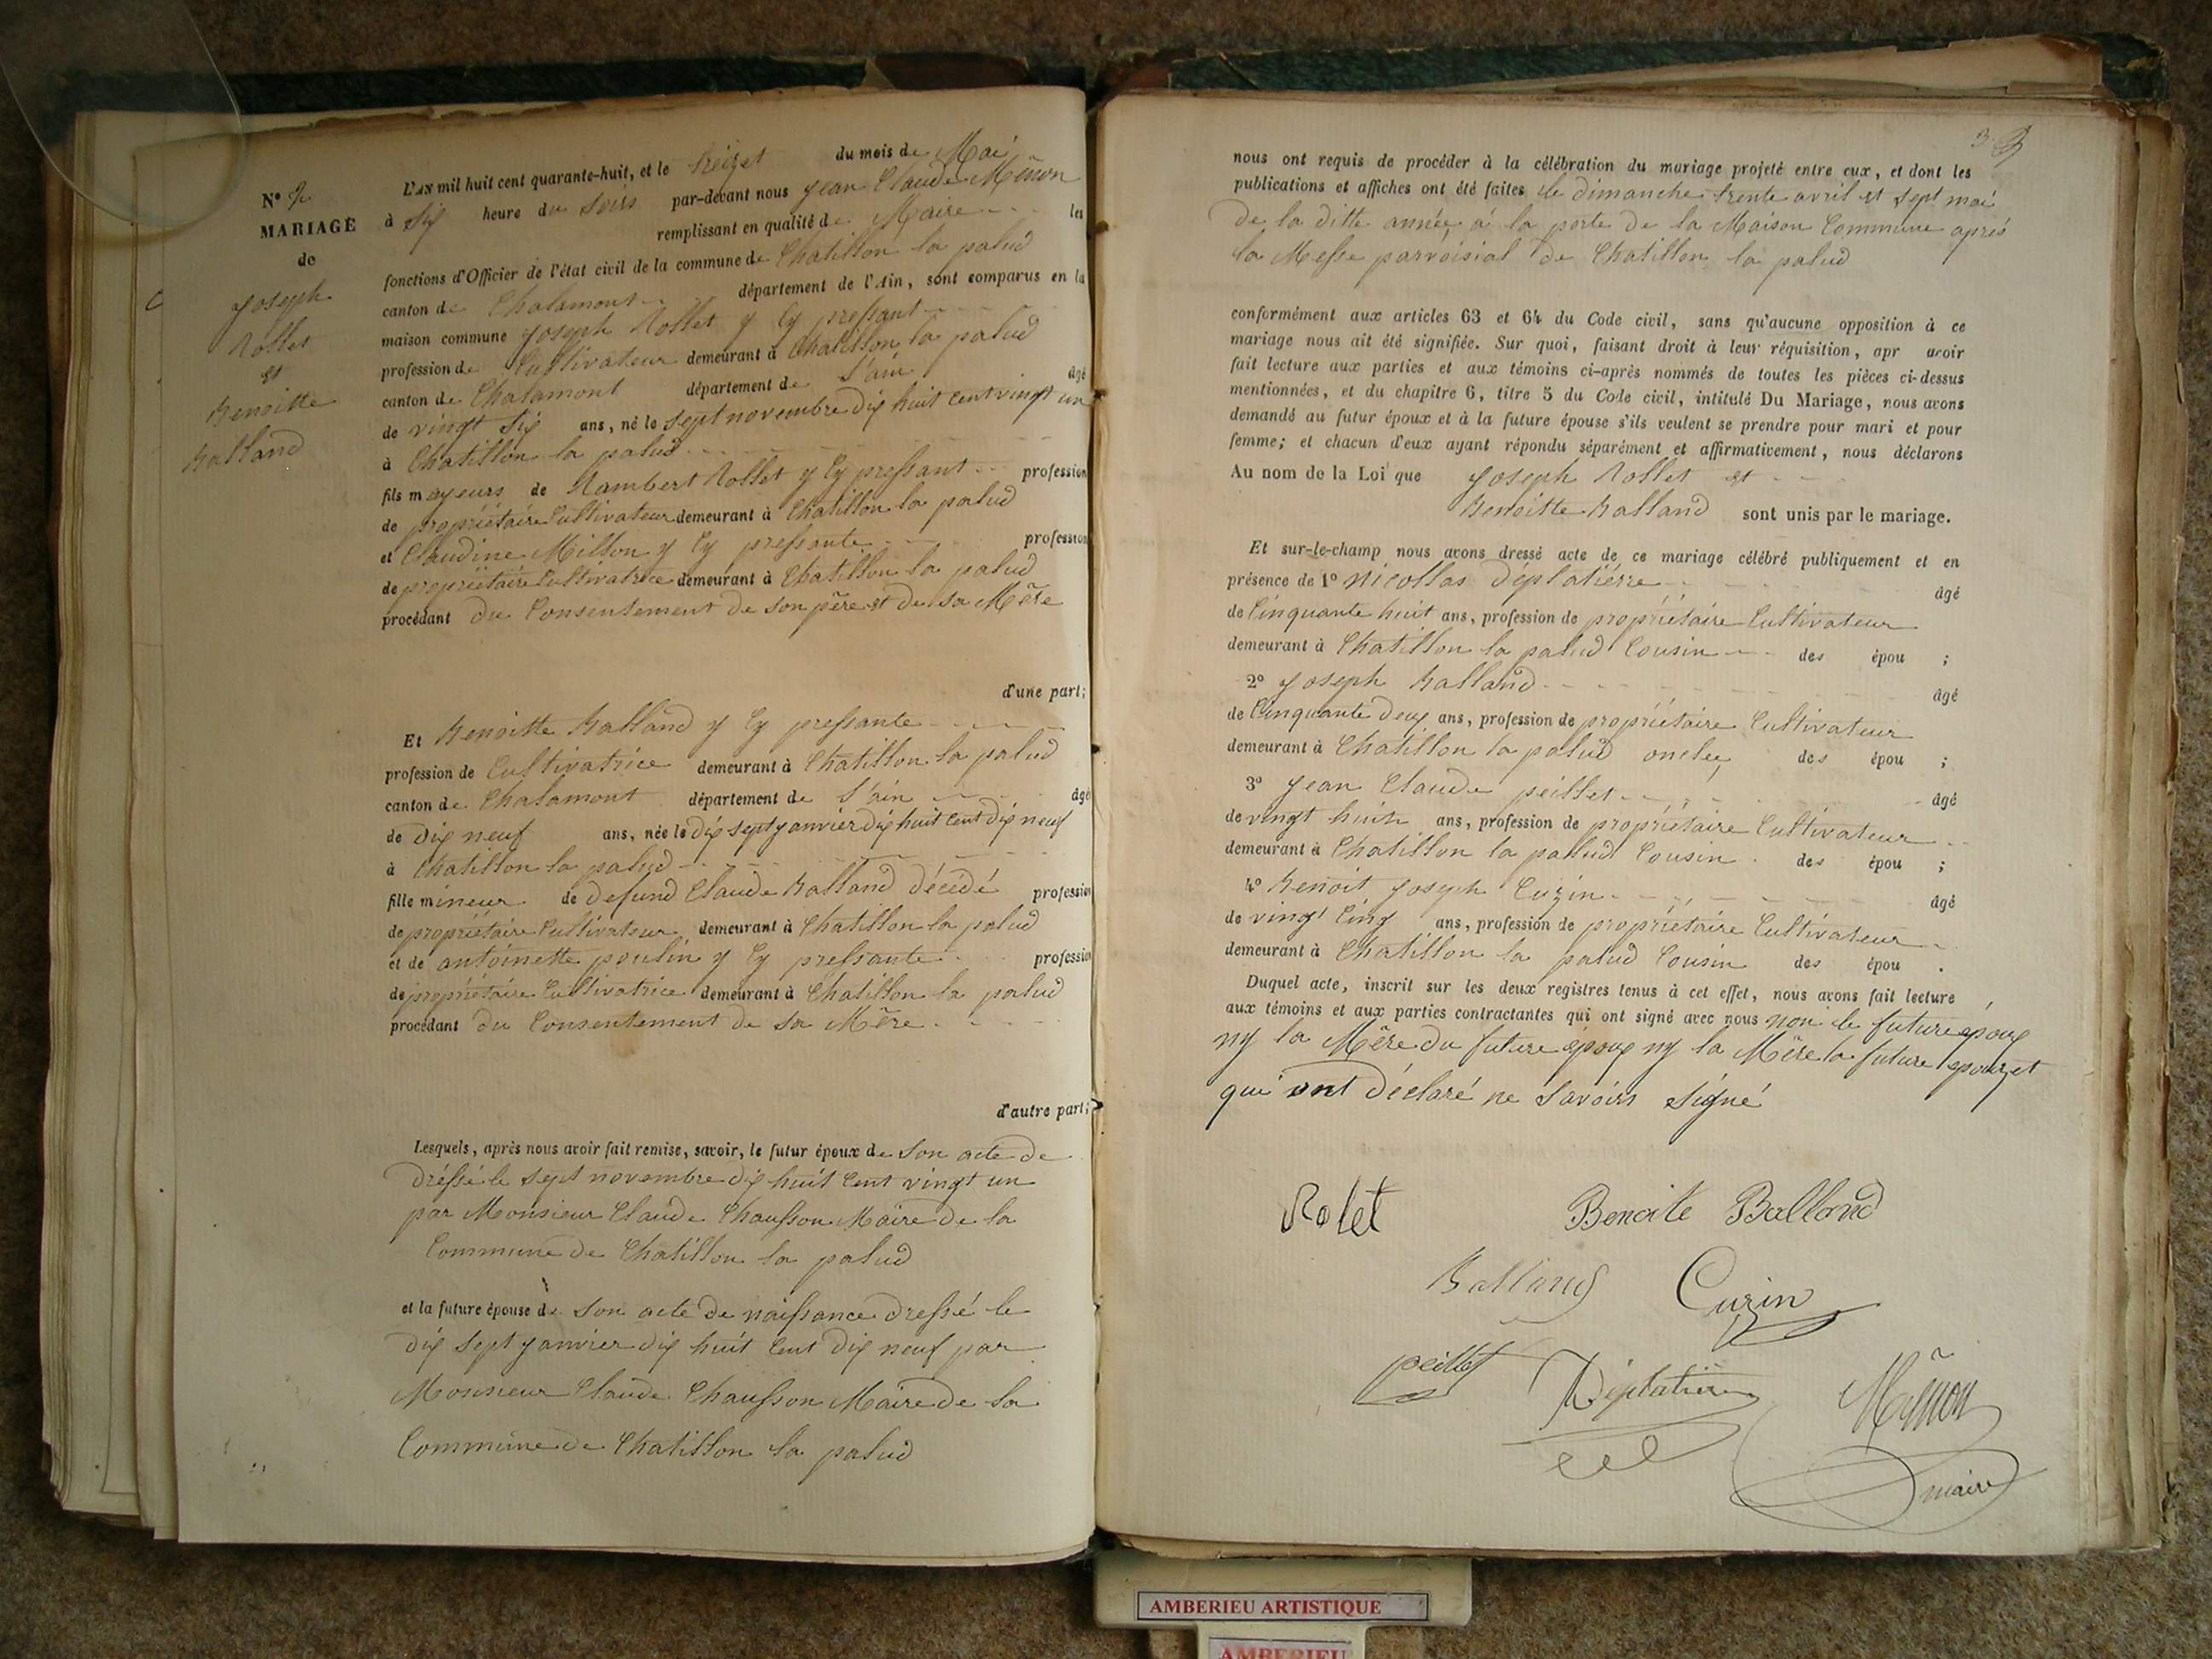 N° 2
MARIAGE
de
Joseph
Rollet
et
Benoitte
Balland
L'AN mil huit cent quarante-huit, et le treizet du mois de Mai
à six heure du soirs par-devant nous Jean Claude Mênon
remplissant en qualité de Maire les
fonctions d'Officier de l'état civil de la commune de Chatillon la palud
canton de Chalamont département de l'Ain, sont comparus en la
maison commune Joseph Rollet y Cy pressant
profession de Cultivateur demeurant à Chatillon la palud
canton de Chalamont département de L'ain âgé
de vingt six ans, né le sept novembre dix huit cent vingt un
à Chatillon la palud
fils mayeurs de Rambert Rollet y Cy pressant profession
de propriétaire Cultivateur demeurant à Chatillon la palud
et Claudine Millon y Cy pressante profession
de propriétaire Cultivatrice demeurant à Chatillon la palud
procédant du Consentement de son père et de sa Mère
d'une part;
Et Benoitte Balland y Cy pressante
profession de Cultivatrice demeurant à Chatillon la palud
canton de Chalamont département de L'ain âgé
de dix neuf ans, née le dix sept janvier dix huit cent dix neuf
à Chatillon la palud
fille mineur de defund Claude Balland décédé profession
de propriétaire Cultivateur demeurant à Chatillon la palud
et de antoinette poulin y Cy pressante profession
de propriétaire Cultivatrice demeurant à Chatillon la palud
procédant du Consentement de sa Mère
d'autre part;
Lesquels, après nous avoir fait remise, savoir, le futur époux de son acte de
dréssé le sept novembre dix huit cent vingt un
par Monsieur Claude Chausson Maire de la
Commune de Chatillon la palud
et la future épouse de son acte de naissance dressé le
dix sept janvier dix huit cent dix neuf par
Monsieur Claude Chausson Maire de la
Commune de Chatillon la palud
3
nous ont requis de procéder à la célébration du mariage projeté entre eux, et dont les
publications et affiches ont été faites le dimanche trente avril et sept mai
de la ditte année à la porte de la Maison Commune aprés
la Messe parroisial de Chatillon la palud
conformément aux articles 63 et 64 du Code civil, sans qu'aucune opposition à ce
mariage nous ait été signifiée. Sur quoi, faisant droit à leur réquisition, apr avoir
fait lecture aux parties et aux témoins ci-après nommés de toutes les pièces ci-dessus
mentionnées, et du chapitre 6, titre 5 du Code civil, intitulé Du Mariage, nous avons
demandé au futur époux et à la future épouse s'ils veulent se prendre pour mari et pour
femme; et chacun d'eux ayant répondu séparément et affirmativement, nous déclarons
Au nom de la Loi que Joseph Rollet et
Benoitte Balland sont unis par le mariage.
Et sur-le-champ nous avons dressé acte de ce mariage célébré publiquement et en
présence de 1° Nicollas Déplatiérre âgé
de Cinquante huit ans, profession de propriétaire Cultivateur
demeurant à Chatillon la palud Cousin des épou ;
2° Joseph Balland âgé
de Cinquante deux ans, profession de propriétaire Cultivateur
demeurant à Chatillon la palud des épou ;
3° Jean Claude peillet âgé
de vingt huit ans, profession de propriétaire Cultivateur
demeurant à Chatillon la palud Cousin des épou ;
4° Benoit Joseph Cuzin âgé
de vingt Cinq ans, profession de propriétaire Cultivateur
demeurant à Chatillon la palud Cousin des épou .
Duquel acte, inscrit sur les deux registres tenus à cet effet, nous avons fait lecture
aux témoins et aux parties contractantes qui ont signé avec nous non le future époux
ny la Mère du future époux ny la Mère la future
qui ont déclaré ne savoirs signé
Rolet Benoite Balland
Balland Cuzin
peillet Déplatière Mênon
maire
AMBERIEU ARTISTIQUE
AMBERIEU